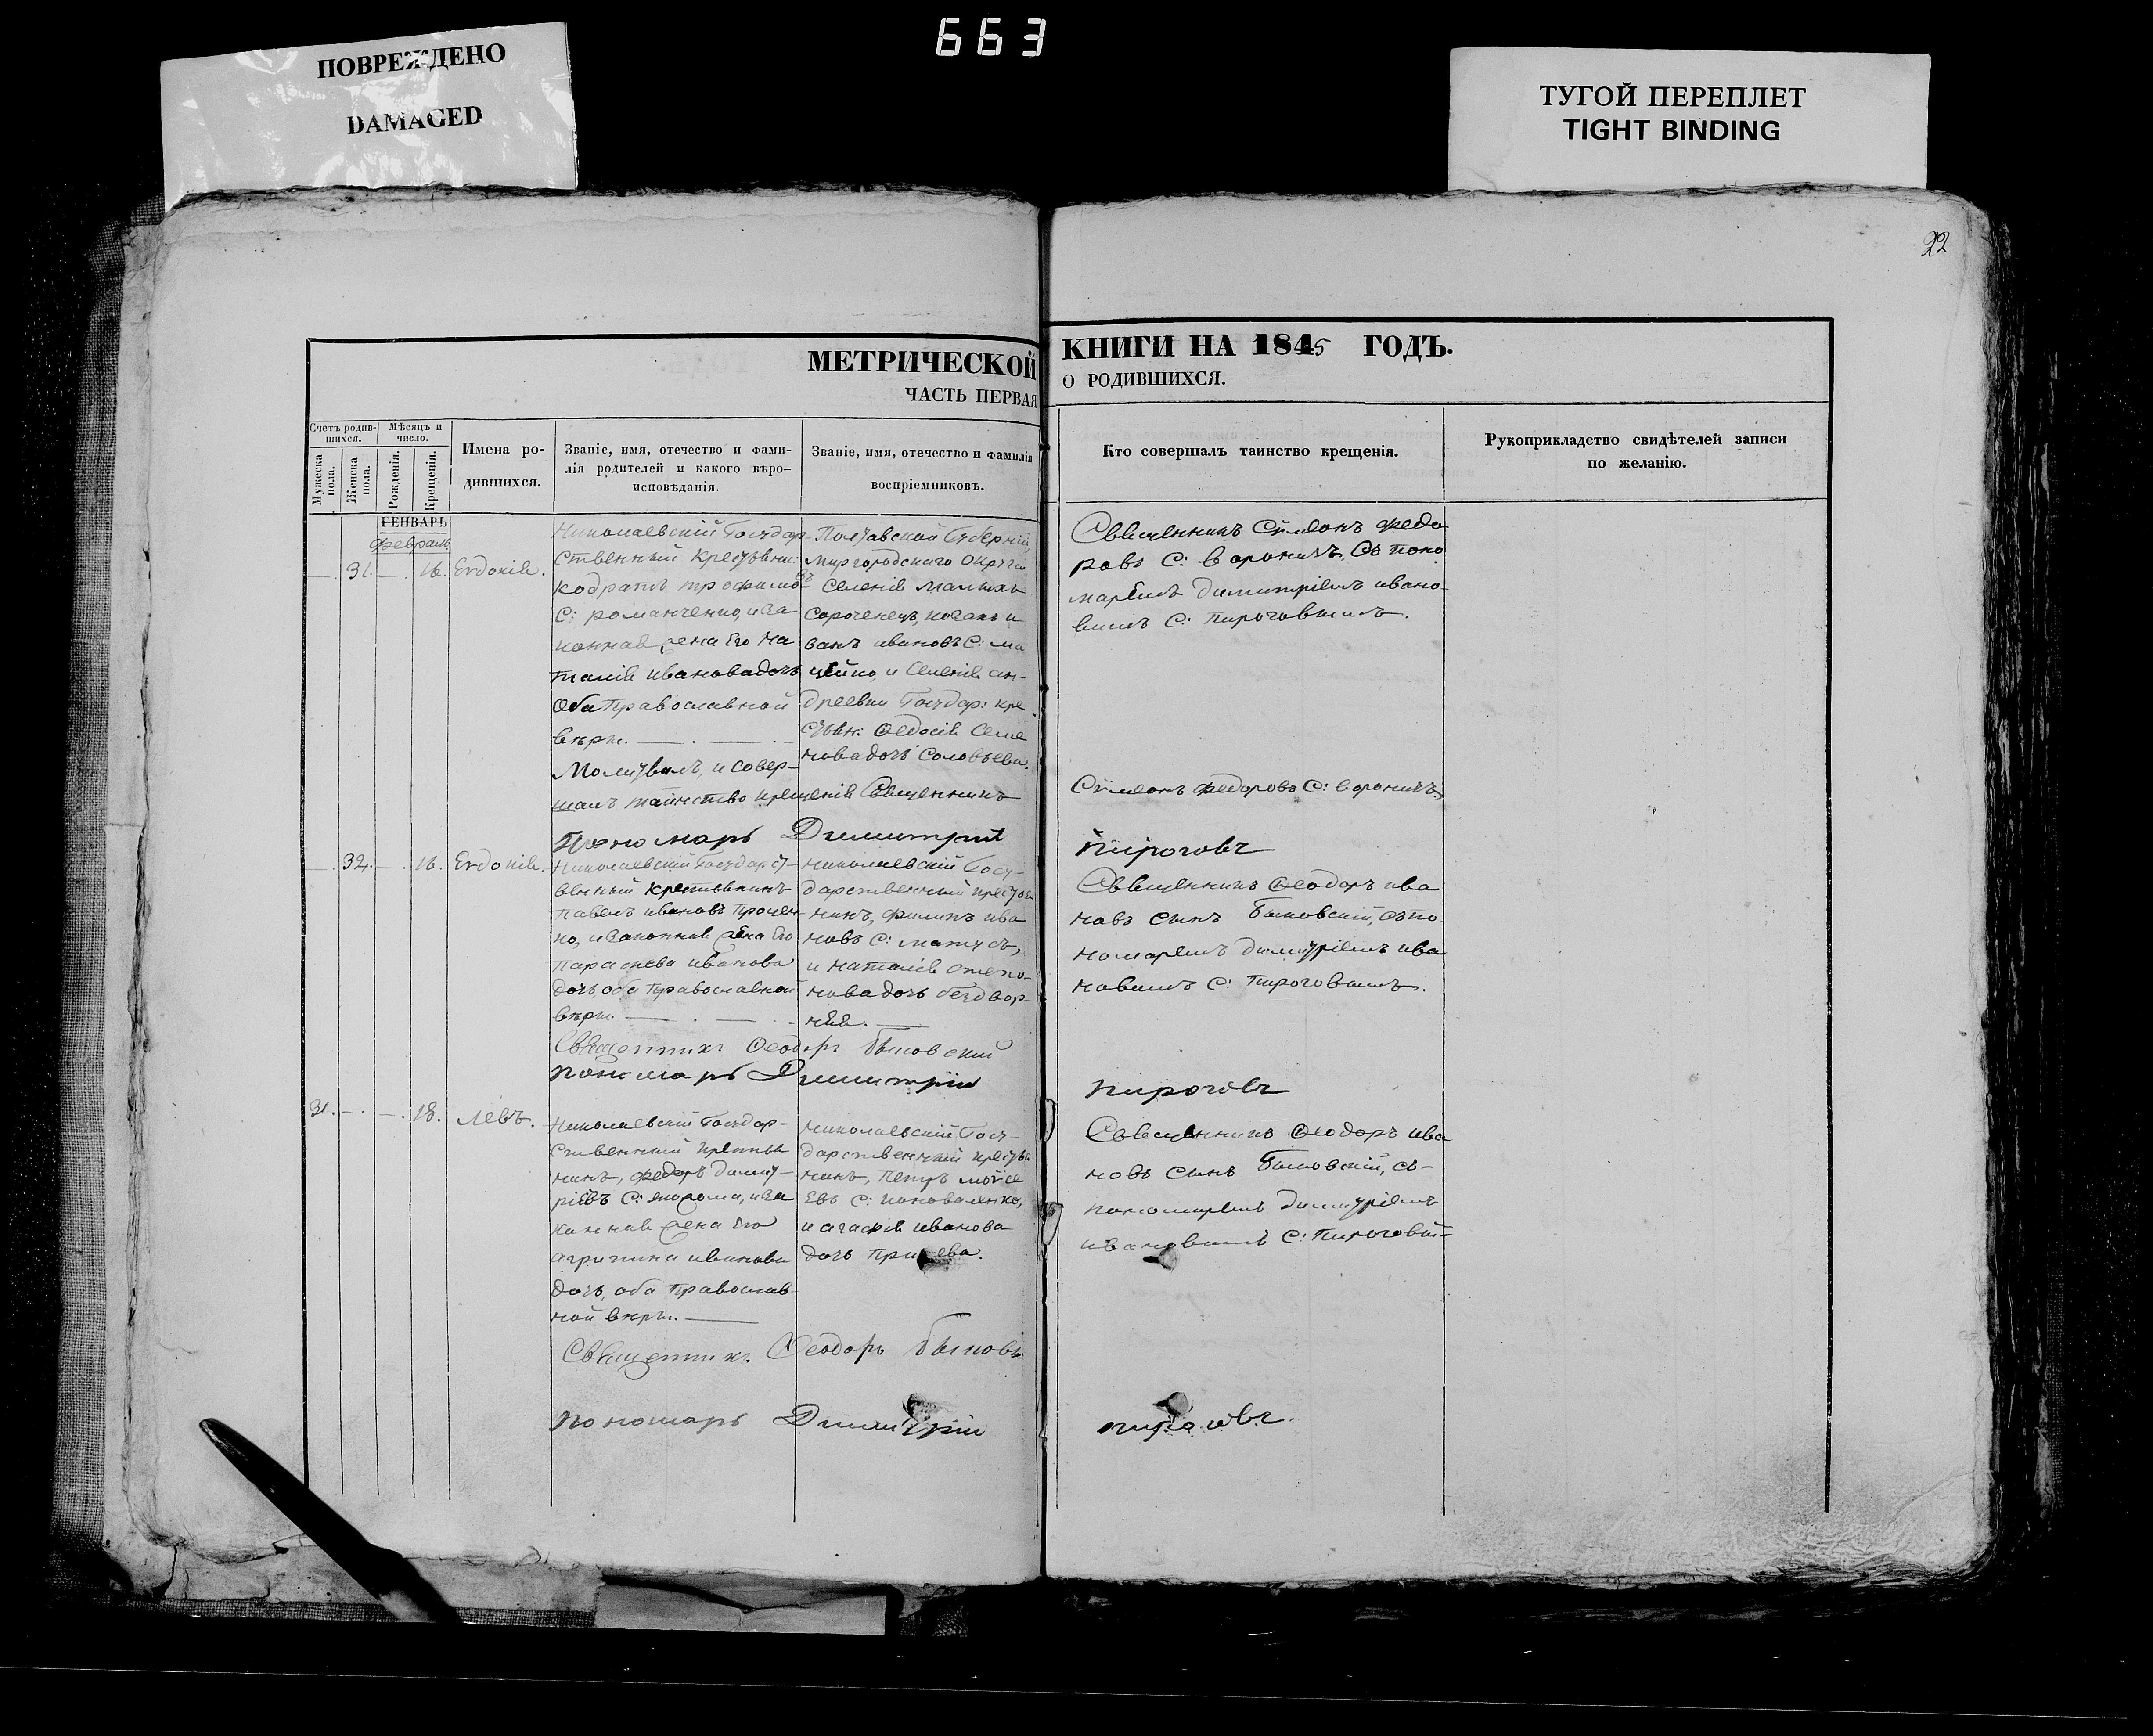 663
ПОВРЕЖДЕНО
DAMAGED
ТУГОЙ ПЕРЕПЛЕТ
TIGHT BINDING
22
МЕТРИЧЕСКОЙ
ЧАСТЬ ПЕРВАЯ
КНИГИ НА 1845 ГОДЪ.
О РОДИВШИХСЯ.
Счетъ родив-
шихся.
Мужеска
пола.
Женска
пола.
Мѣсяцъ и
число.
Рожденія.
Крещенія.
Имена ро-
дившихся.
Званіе, имя, отечество и фами-
лія родителей и какого вѣро-
исповѣданія.
Званіе, имя, отечество и фамилія
воспріемниковъ.
Кто совершалъ таинство крещенія.
Рукоприкладство свидѣтелей записи
по желанію.
ГЕНВАРЬ
Февраль
31. 16. Евдокія.
Николаевскій Государ-
ственный крестьян:
кодратъ трофимовъ
С: романченко, и за
конная жена Его На
талія иванова дочь
Оба Православной
вѣры.
Молитвилъ, и совер-
шалъ таинство крещенія Священникъ
Пономарь Димитрій
Полтавской Губерніи,
Миргородского Округа
Селенія малыхъ
Сорочинецъ, козакъ и
ванъ ивановъ С: ма
цейко, и Селенія ан-
дреевки Государ: кре
стьян: Федосія Семе
нова дочь Соловьева.
Священникъ Сѵмеонъ Федо
ровъ С: вороничъ, Съ поно
маремъ димитріемъ ивано
вымъ С: пироговымъ.
Сѵмеонъ Федоровъ С: вороничъ,
Пироговъ
32. 16. Евдокія.
Николаевскій Государст-
венный крестьянинъ
Павелъ ивановъ Процен-
ко, и законная жена Его
Параскева иванова
дочь, оба Православной
вѣры.
Священникъ Феодоръ Быковскій
Пономарь Димитрій
Николаевскій Госу-
дарственный крестья
нинъ, филипъ ива
новъ С: матусъ,
и наталія степа-
нова дочь
Священникъ Феодоръ ива
новъ сынъ Быковскій, съ по-
номаремъ димитріемъ ива
новымъ С: Пироговымъ.
Пироговъ
31. 18. Левъ.
Николаевскій Государ-
ственный крестья
нинъ, Федоръ димит-
ріевъ С: и за
конная жена Его
агрипина иванова
дочь, оба Православ-
ной вѣры.
Священникъ Феодоръ Быковскі
Пономарь Димитрій
Николаевскій Госу-
дарственный крестья
нинъ, Петръ мойсе
Евъ С: коноваленко,
и агафія иванова
дочь
Священникъ Феодоръ ива
новъ сынъ Быковскій, съ-
пономаремъ димитріемъ
ивановымъ С: Пироговым
Пироговъ.